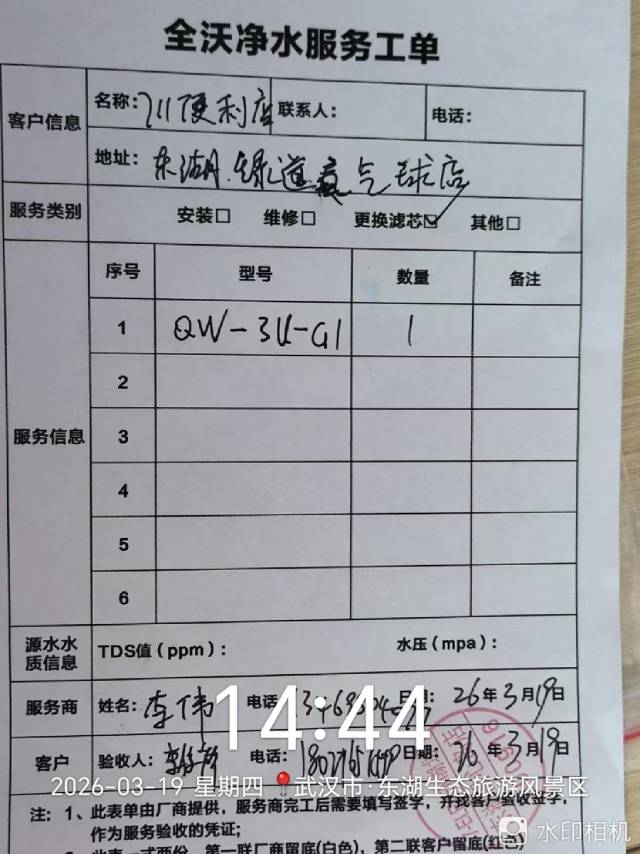 全沃净水服务工单
客户信息 名称： 便利店 联系人： 电话：
地址： 东湖绿道 气球店
服务类别 安装□ 维修□ 更换滤芯☑ 其他□
服务信息 序号 型号 数量 备注
1 QW-3U-G1 1
2
3
4
5
6
源水水质信息 TDS值（ppm）： 水压（mpa）：
服务商 姓名： 李伟 电话 日期： 26年3月19日
客户 验收人： 电话： 日期： 26年3月19日
14:44
2026-03-19 星期四 武汉市·东湖生态旅游风景区
注：1、此表单由厂商提供，服务商完工后需要填写签字，并找客户验收签字，
作为服务验收的凭证；
此表一式两份，第一联厂商留底(白色)，第二联客户留底(红色)
水印相机